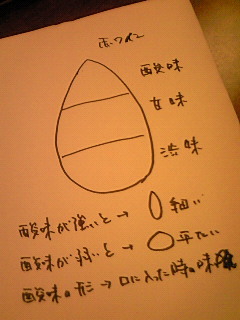 赤ワイン
酸味
甘味
渋味
酸味が強いと→ 細い
酸味が弱いと→ 平たい
酸味の形→口に入った時の味